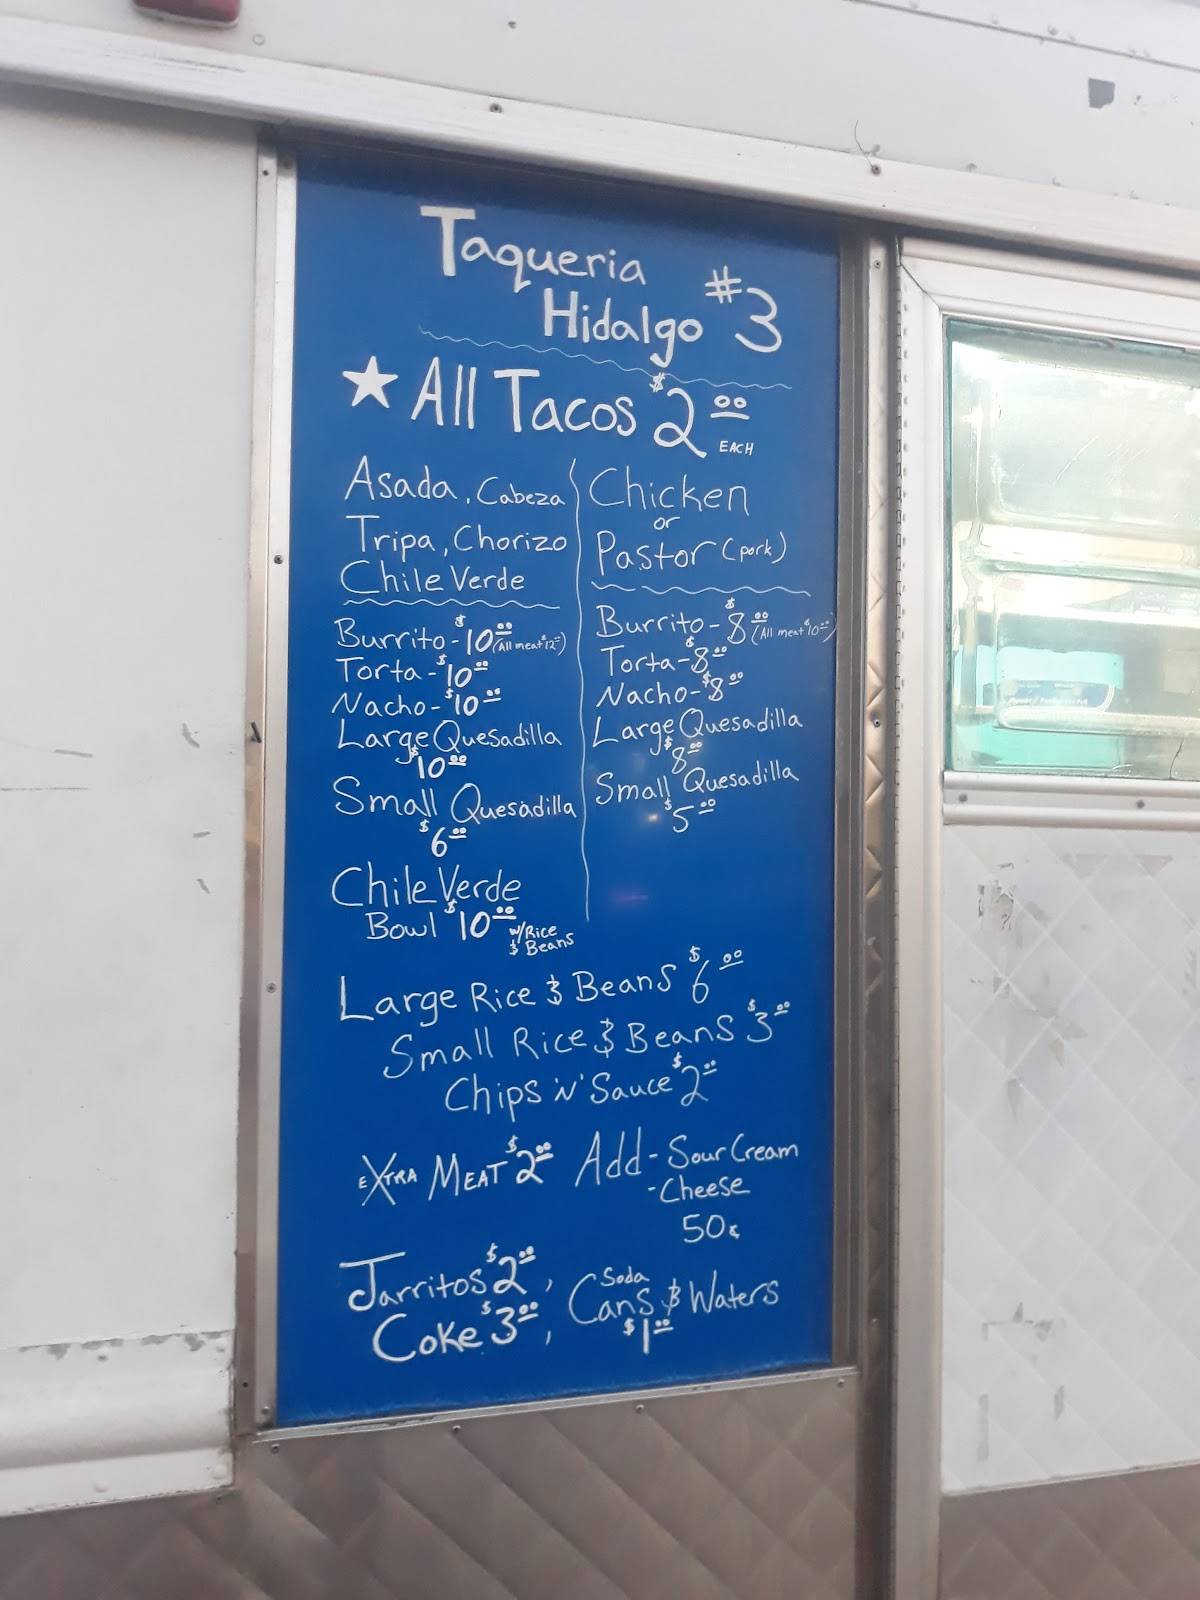 Taqueria
Hidalgo #3
★ All Tacos $2.00
EACH
Asada, Cabeza
Tripa, Chorizo
Chile Verde
Burrito - $10.00 (All meat $12.00)
Torta - $10.00
Nacho - $10.00
Large Quesadilla
$10.00
Small Quesadilla
$6.00
Chile Verde
Bowl $10.00 w/Rice
& Beans
Chicken
or
Pastor (pork)
Burrito - $8.00 (All meat $10.00)
Torta - $8.00
Nacho - $8.00
Large Quesadilla
$8.00
Small Quesadilla
$5.00
Large Rice & Beans $6.00
Small Rice & Beans $3.00
Chips 'N' Sauce $2.00
EXTRA MEAT $2.00
Add - Sour Cream
- Cheese
50¢
Jarritos $2.00,
Coke $3.00,
Soda
Cans & Waters
$1.00